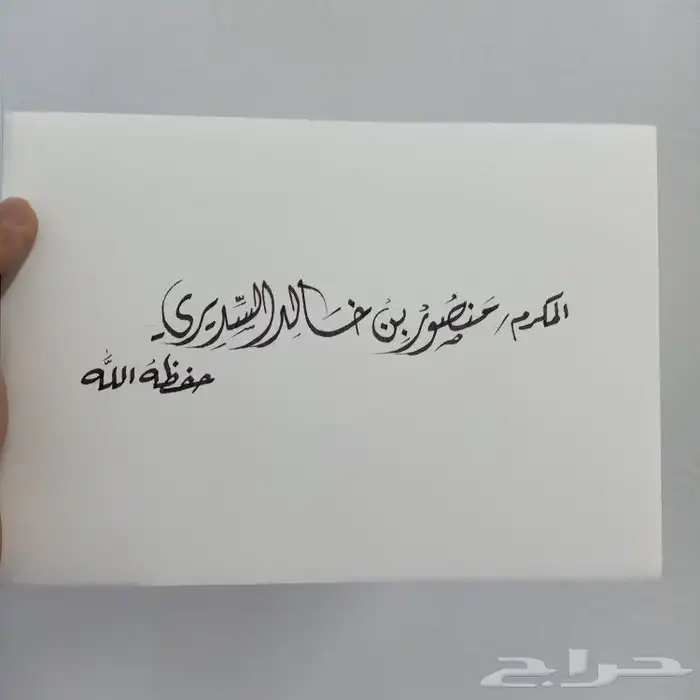 المكرم / مَنصُورْ بِنْ خَالد السِّديري
حفظهُ اللَّه
حراج